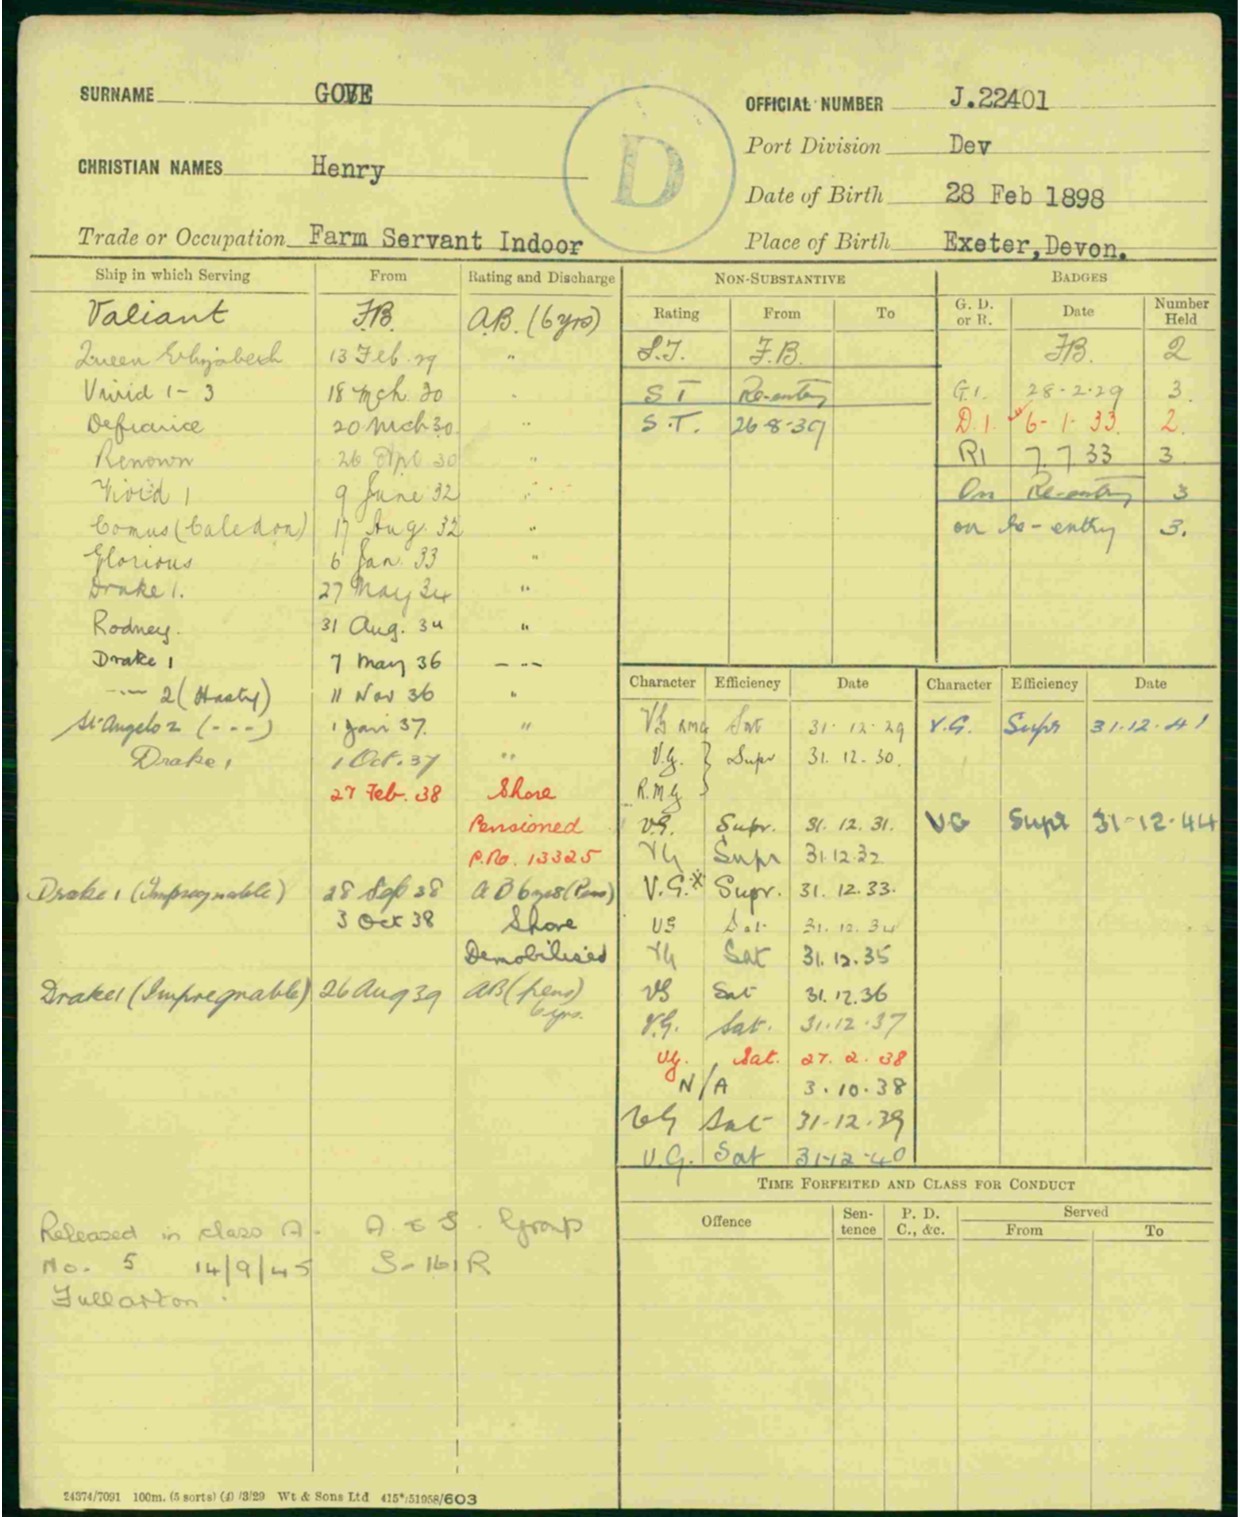 SURNAME GOVE
OFFICIAL NUMBER J.22401
Port Division Dev
CHRISTIAN NAMES Henry
D
Date of Birth 28 Feb 1898
Trade or Occupation Farm Servant Indoor
Place of Birth Exeter, Devon.
Ship in which Serving From Rating and Discharge
Valiant F.B. A.B. (6 yrs)
Queen Elizabeth 13 Feb. 29 "
Vivid 1-3 18 Mch 30 "
Defiance 20 Mch 30 "
Renown 26 Apl 30 "
Vivid 1 9 June 32 "
Comus (Caledon) 17 Aug. 32 "
Glorious 6 Jan. 33 "
Drake 1. 27 May 34 "
Rodney. 31 Aug. 34 "
Drake 1 7 May 36 -"-
-"- 2 (Hasty) 11 Nov 36 "
St Angelo 2 (---) 1 Jan 37. "
Drake 1 1 Oct. 37 "
27 Feb. 38 Shore
Pensioned
P.No. 13325
Drake 1 (Impregnable) 28 Sep 38 AB 6 yrs (Pens)
3 Oct 38 Shore
Demobilised
Drake 1 (Impregnable) 26 Aug 39 AB (pens)
6 yrs.
Released in class A. A & S. Group
No. 5 14/9/45 S-161R
Fullarton.
NON-SUBSTANTIVE
Rating From To
S.T. F.B.
S T Re-entry
S.T. 26-8-39
BADGES
G. D. or R. Date Number Held
F.B. 2
G.1. 28-2-29 3.
D.1. 6-1-33. 2.
R1 7.7 33 3
On Re-entry 3
on Re-entry 3.
Character Efficiency Date Character Efficiency Date
VG RMG Sat 31-12-29 V.G. Supr 31-12-41
V.G. } Supr 31.12.30.
R.M.G }
V.G. Supr. 31.12.31. VG Supr 31-12-44
VG Supr 31.12.32
V.G.* Supr. 31.12.33.
VG Sat 31.12.34
VG Sat 31.12.35
VG Sat 31.12.36
V.G. Sat. 31.12.37
VG. Sat. 27.2.38
N/A 3.10.38
VG Sat 31-12-39
V.G. Sat 31-12-40
TIME FORFEITED AND CLASS FOR CONDUCT
Offence Sentence P. D. C., &c. Served
From To
24374/7091 100m. (5 sorts) (4) /3/29 Wt & Sons Ltd 415*/51958/603